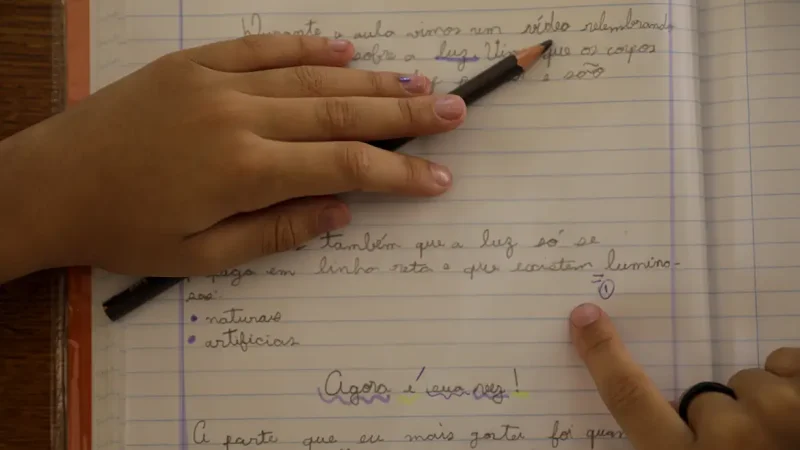 Durante a aula vimos um vídeo relembrando
sobre a luz. Vimos que os corpos
e são
também que a luz só se
propaga em linha reta e que existem lumino-
sos:
①
• naturais
• artificiais
Agora é sua vez!
A parte que eu mais gostei foi quan